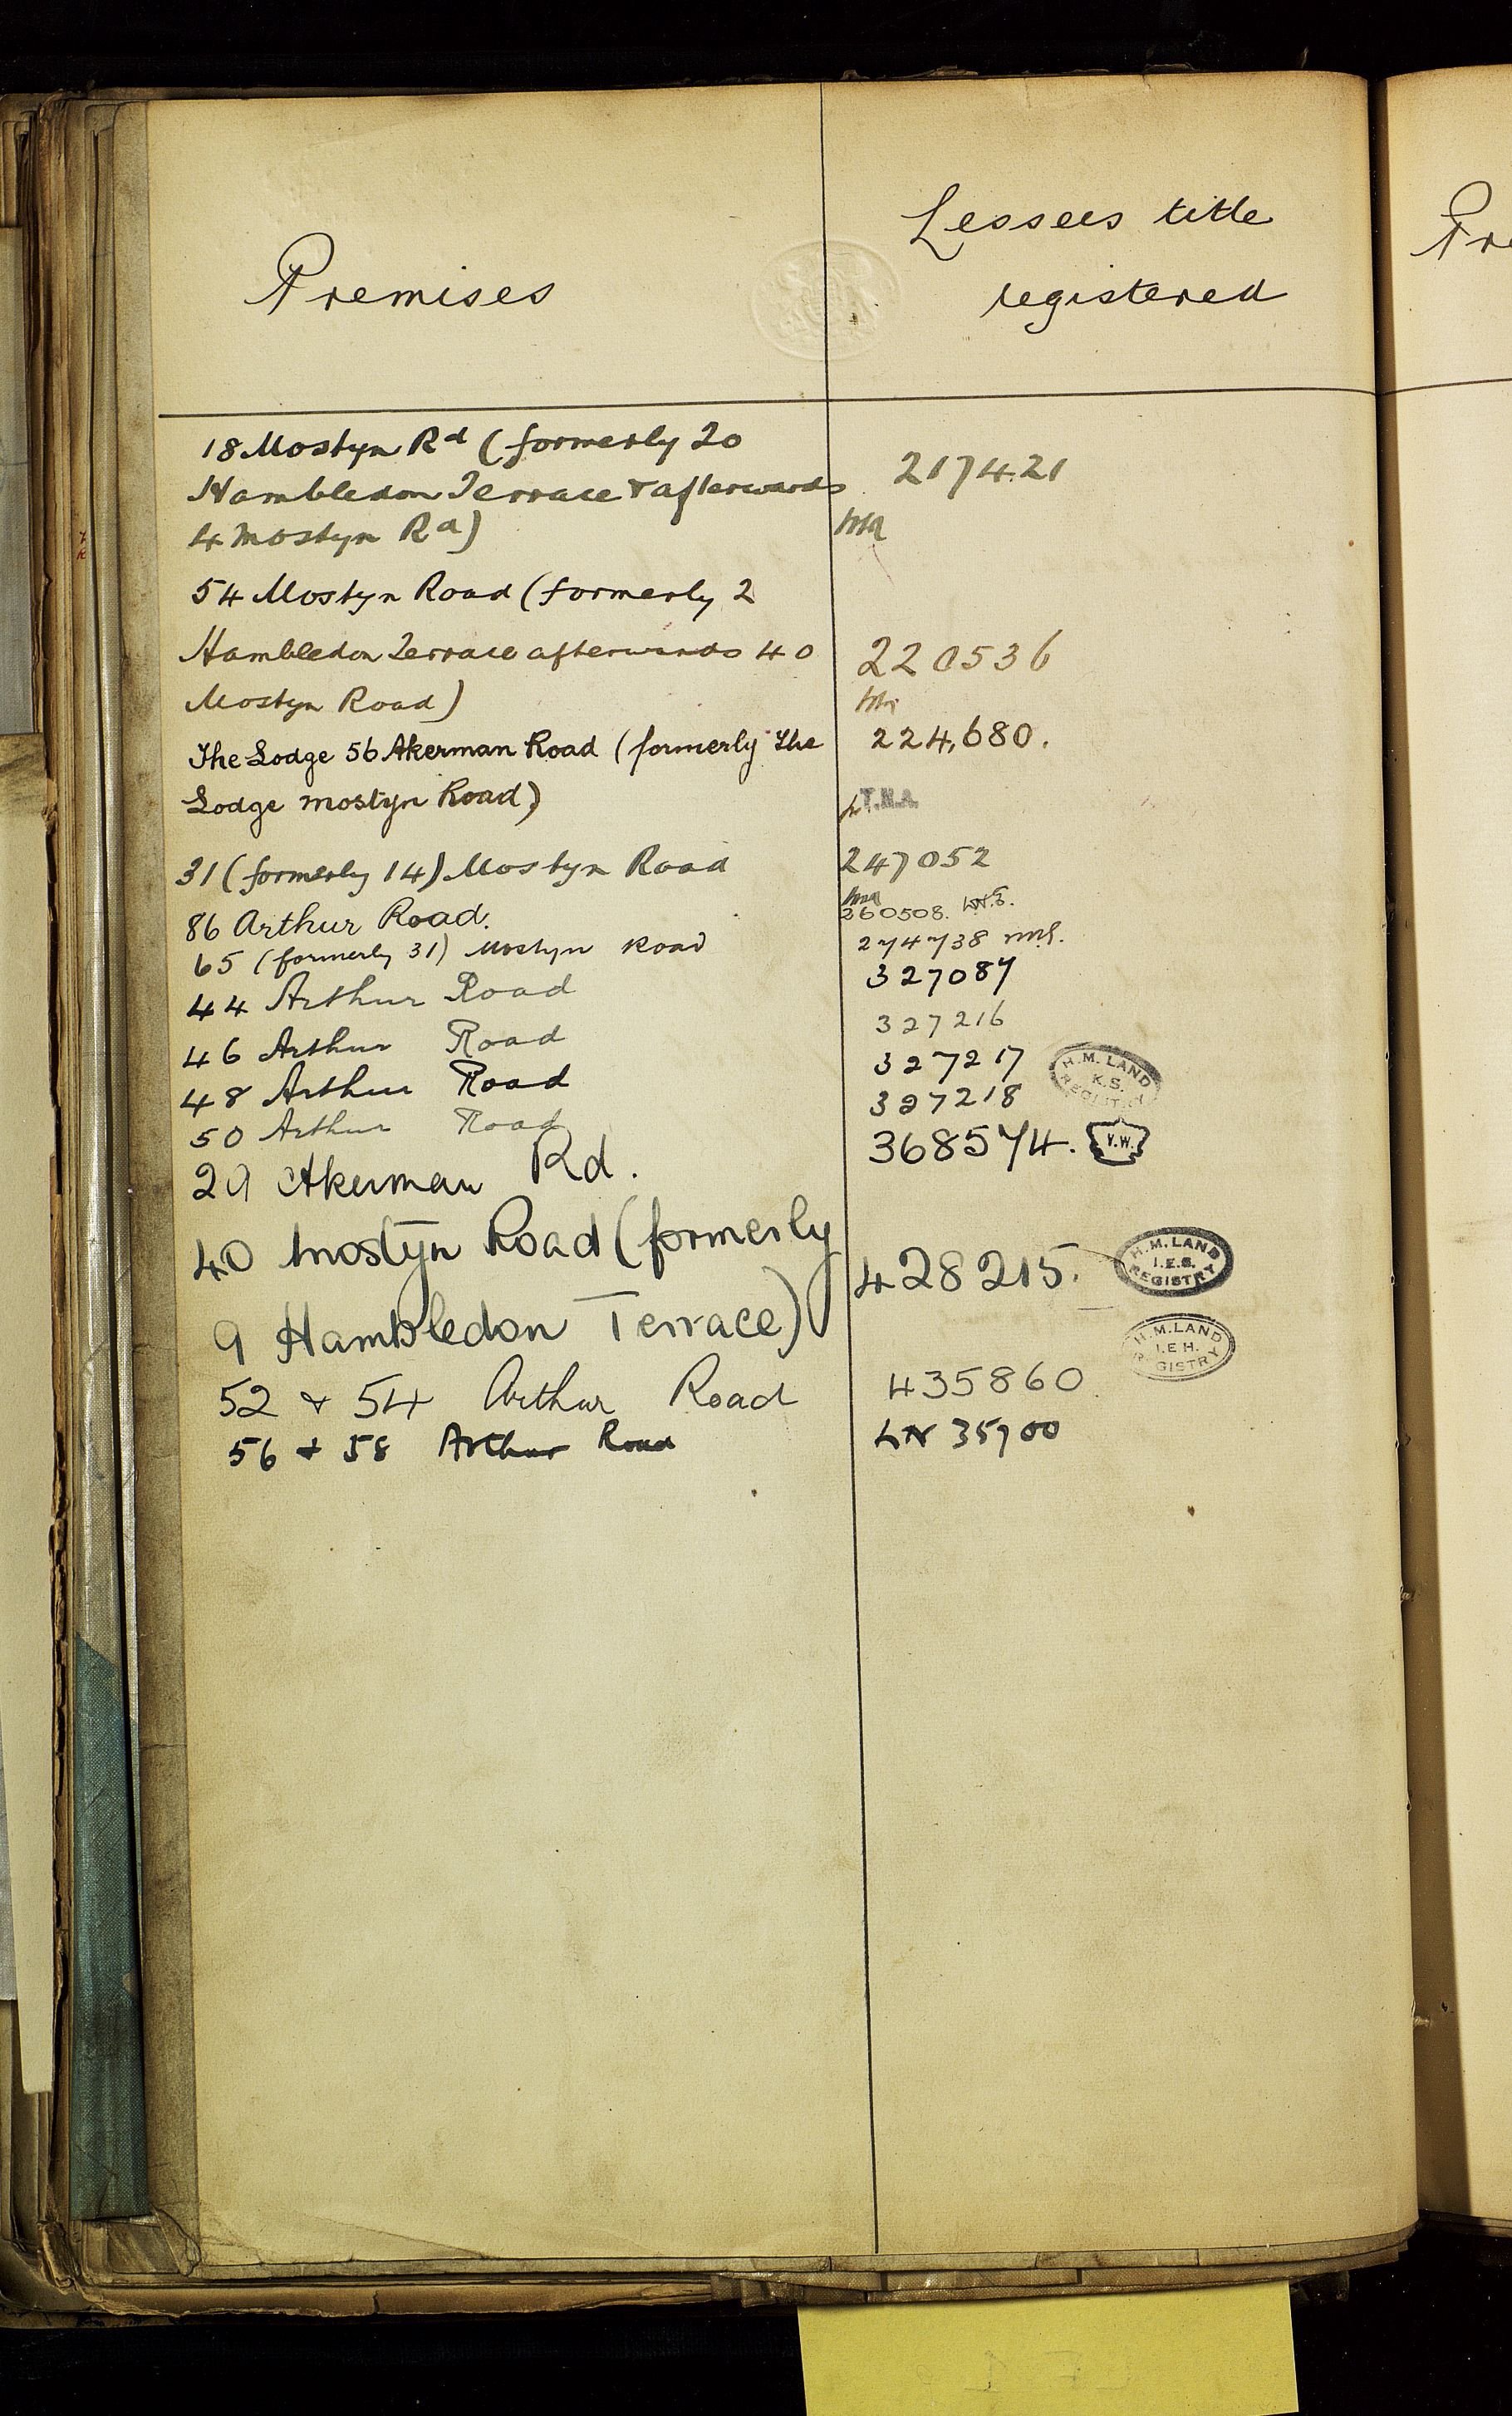 Premises
Lessees title
registered
18 Mostyn Rd (formerly 20
Hambledon Terrace & afterwards
217421
4 Mostyn Rd)
54 Mostyn Road (formerly 2
Hambledon Terrace afterwards 40
220536
Mostyn Road)
The Lodge 56 Akerman Road (formerly The
224,680.
Lodge Mostyn Road)
T.H.A.
31 (formerly 14) Mostyn Road
247052
86 Arthur Road.
260508.
65 (formerly 31) Mostyn Road
274738
44 Arthur Road
327087
46 Arthur Road
327216
48 Arthur Road
327217
H.M. LAND
K.S.
REGISTRY
50 Arthur Road
327218
29 Akerman Rd.
368574.
V.W.
40 Mostyn Road (formerly
9 Hambledon Terrace)
428215.
H.M. LAND
I.E.S.
REGISTRY
52 & 54 Arthur Road
435860
H.M. LAND
I.E.H.
REGISTRY
56 & 58 Arthur Road
LN 35900
Pre